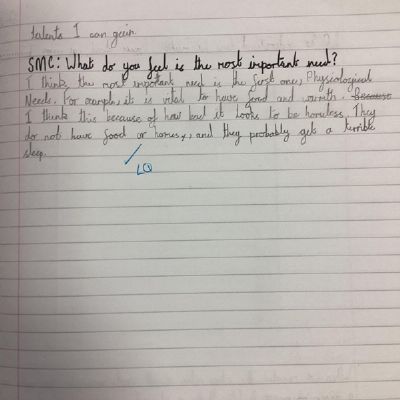 talents I can gain.
SMC: What do you feel is the most important need?
I think the most important need is the first one, Physiological
Needs. For example, it is vital to have food and warmth. Because
I think this because of how bad it looks to be homeless. They
do not have food or homes, and they probably get a terrible
sleep.
LQ